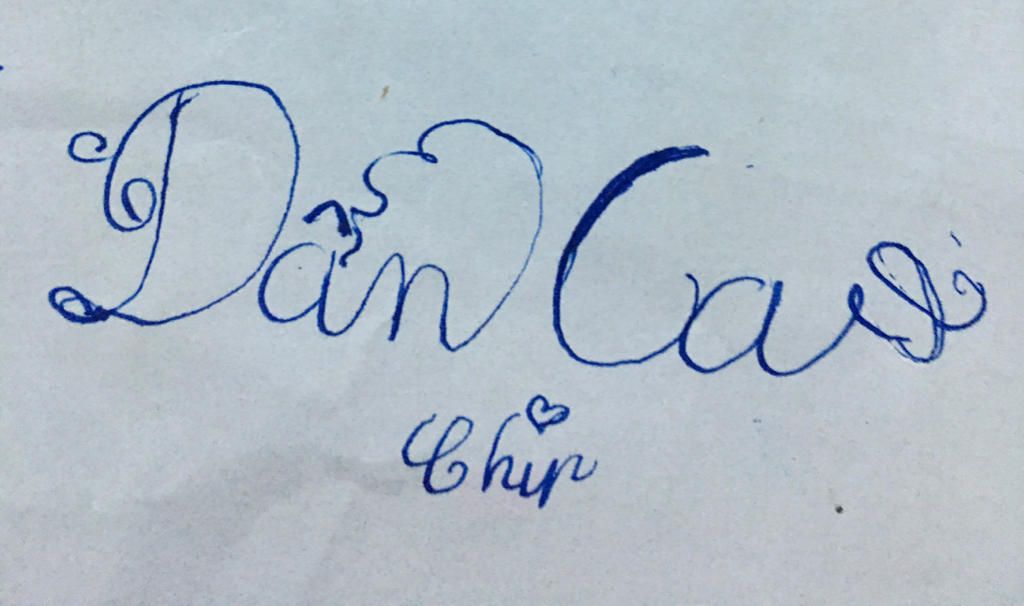 Dẫn Ca
Chip